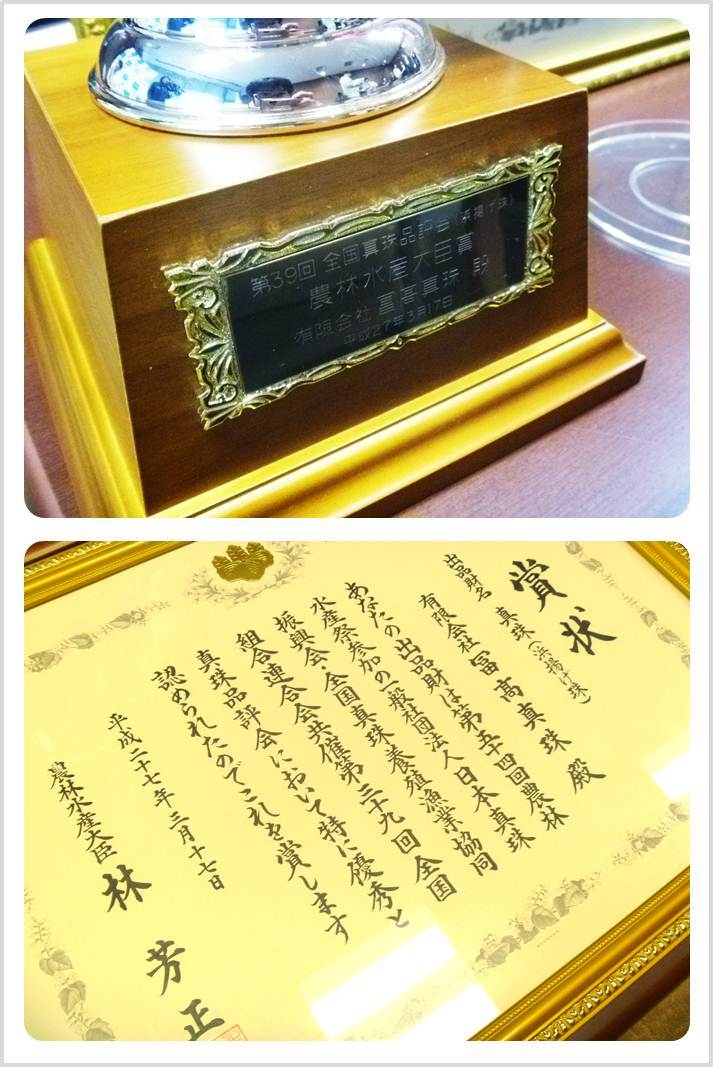 第39回 全国真珠品評会（浜揚げ珠）
農林水産大臣賞
有限会社 冨髙真珠 殿
平成27年3月17日
賞状
出品財名 真珠（浜揚げ珠）
有限会社 冨髙真珠 殿
あなたの出品財は第五十四回農林
水産祭参加の一般社団法人日本真珠
振興会・全国真珠養殖漁業協同
組合連合会共催第三十九回全国
真珠品評会において特に優秀と
認められたのでこれを賞します
平成二十七年三月十七日
農林水産大臣 林 芳正